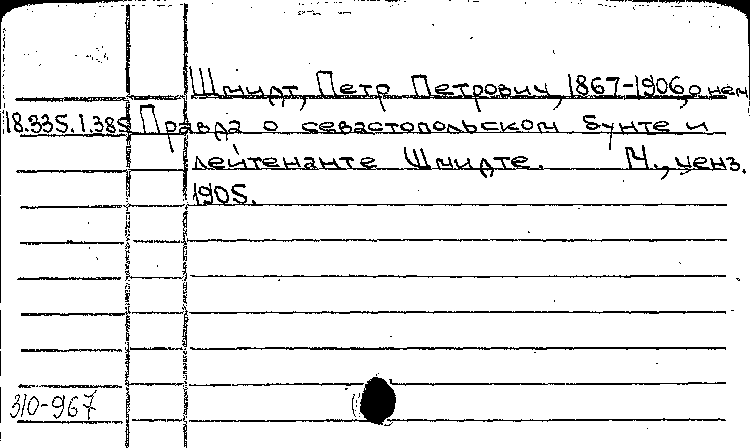 Шмидт, Петр Петрович, 1867-1906, о нем
18.335.1.385 Правда о севастопольском бунте и
лейтенанте Шмидте. М., ценз.
1905.
310-967